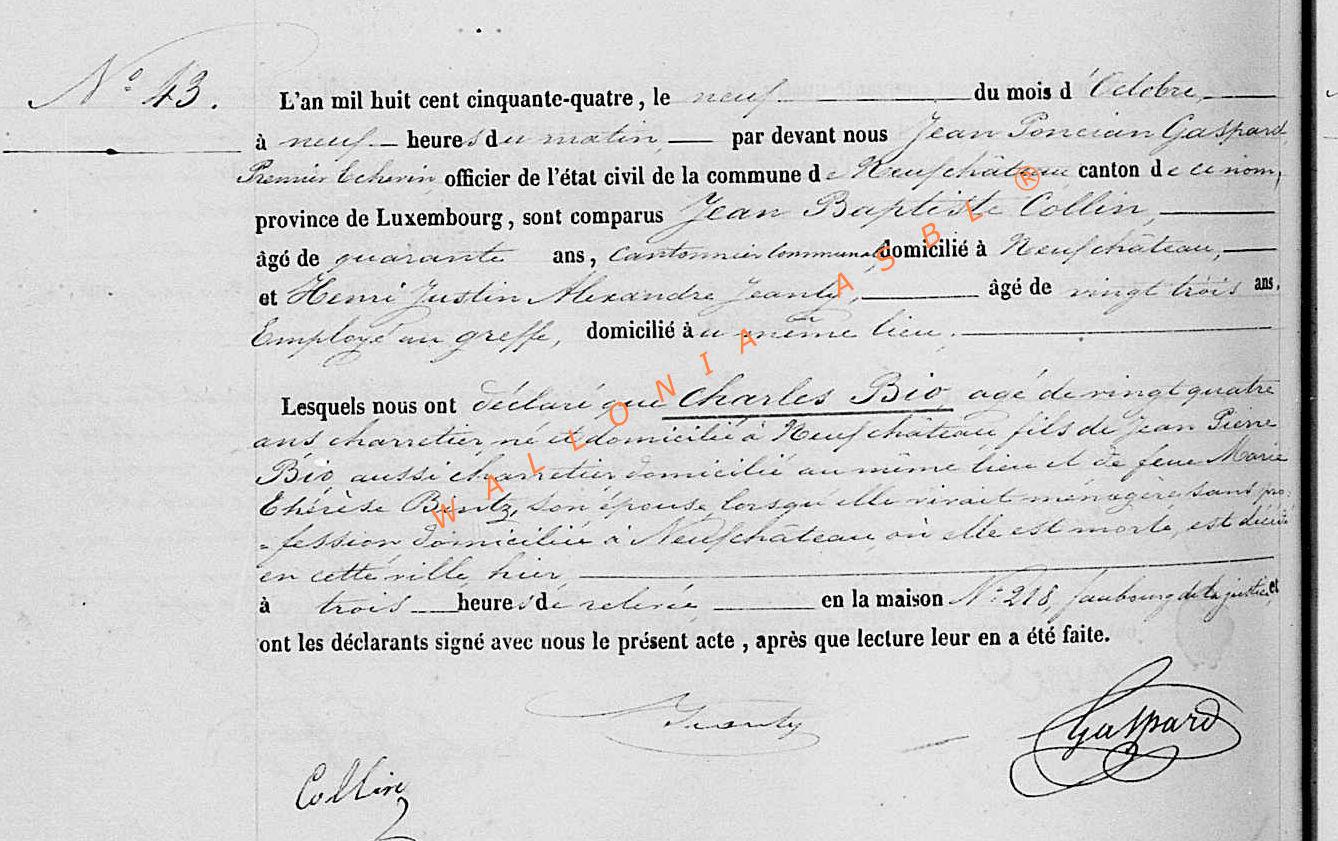 N° 43.
L'an mil huit cent cinquante-quatre, le neuf du mois d'Octobre,
à neuf heures du matin, par devant nous Jean Poncian Gaspard,
Premier Echevin officier de l'état civil de la commune de Neufchâteau canton de ce nom,
province de Luxembourg, sont comparus Jean Baptiste Collin,
âgé de quarante ans, Cantonnier Communal, domicilié à Neufchâteau,
et Henri Justin Alexandre Jeanty, âgé de vingt trois ans,
Employé au greffe, domicilié au même lieu,
Lesquels nous ont déclaré que Charles Bio agé de vingt quatre
ans charretier, né et domicilié à Neufchâteau, fils de Jean Pierre
Bio, aussi charretier domicilié au même lieu et de feue Marie
Thérèse Bentz, son épouse, lorsqu'elle vivait ménagère sans pro-
=fession domiciliée à Neufchâteau, où elle est morte, est décédé
en cette ville, hier,
à trois heures de relevée, en la maison N° 218, faubourg de la justice, et
ont les déclarants signé avec nous le présent acte, après que lecture leur en a été faite.
Jeanty
Gaspard
Collin
WALLONIA ASBL ®